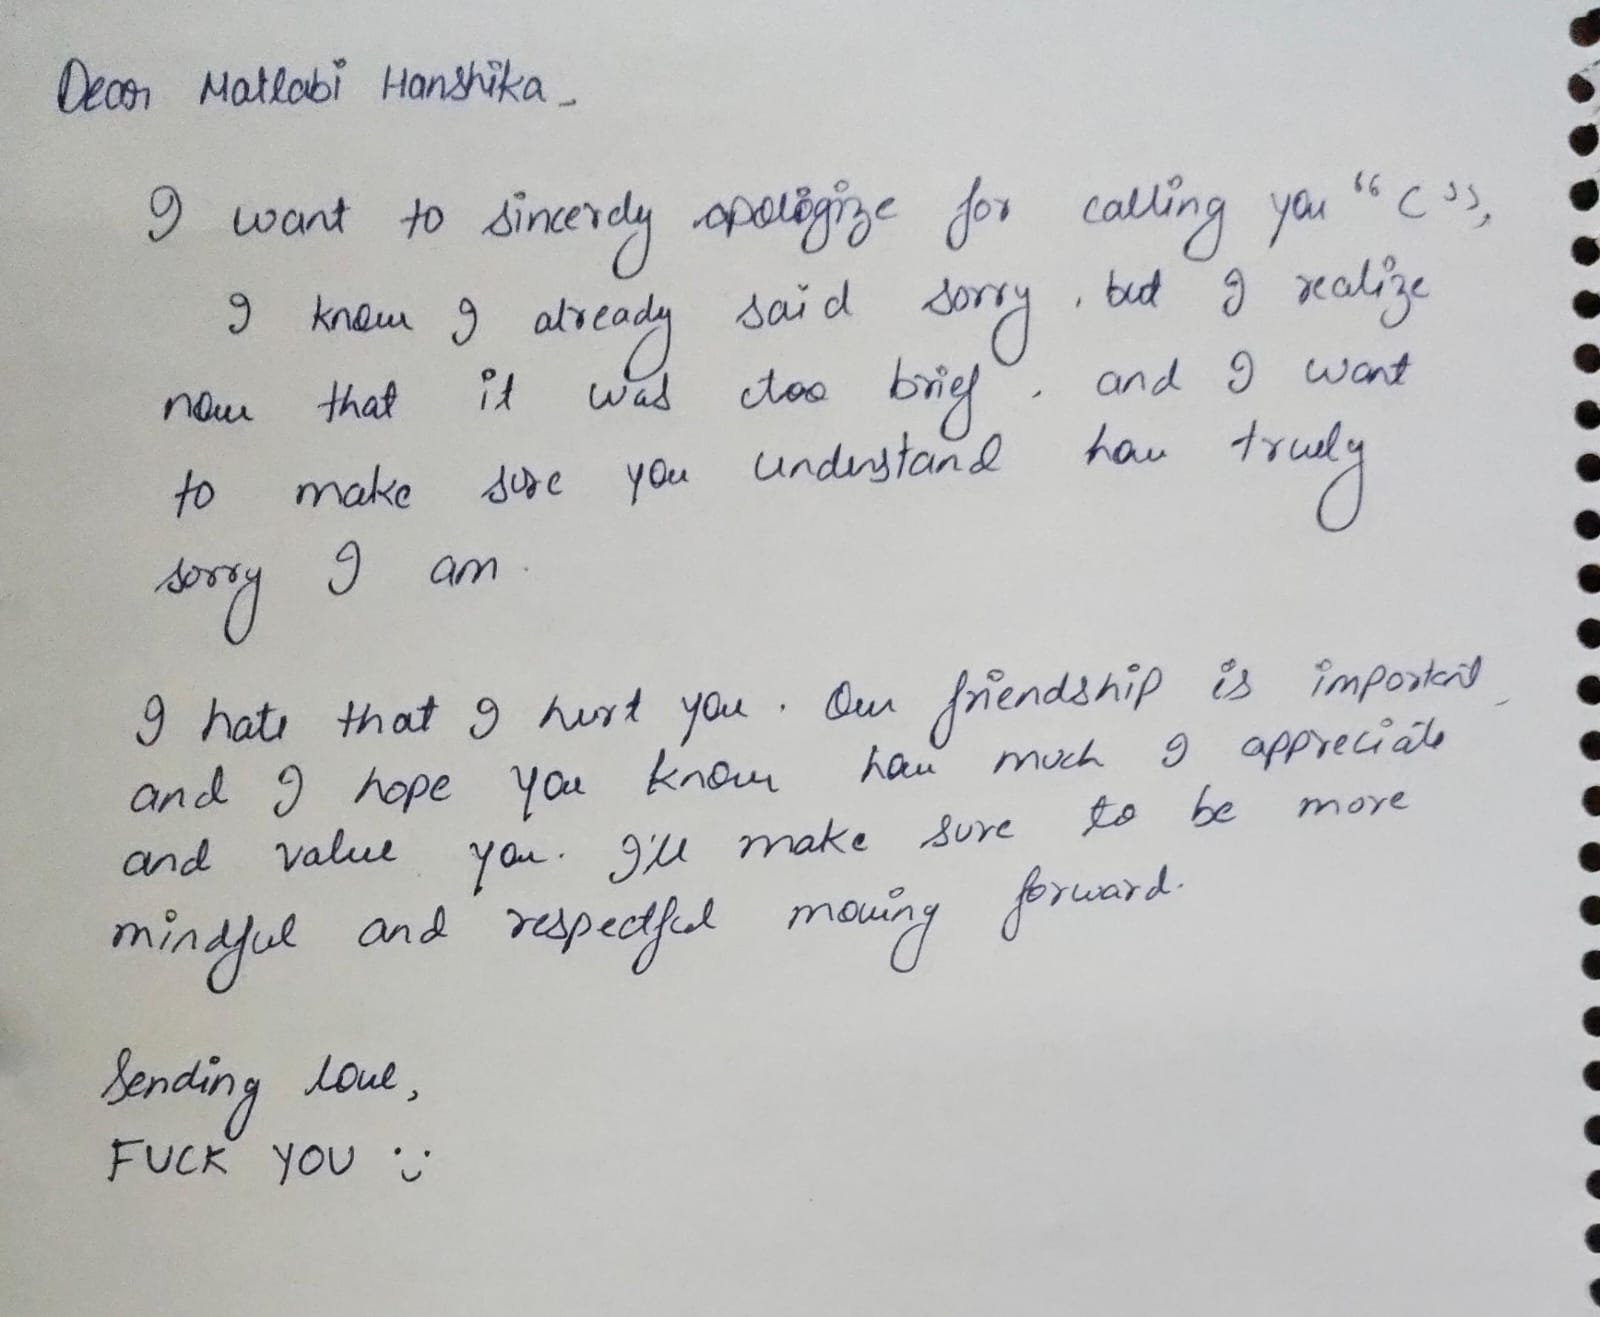 Dear Matlabi Hanshika -
I want to sincerely apologize for calling you "C",
I know I already said sorry, but I realize
now that it was too brief, and I want
to make sure you understand how truely
sorry I am.
I hate that I hurt you. Our friendship is important,
and I hope you know how much I appreciate
and value you. I'll make sure to be more
mindful and respectful moving forward.
Sending love,
FUCK YOU :)